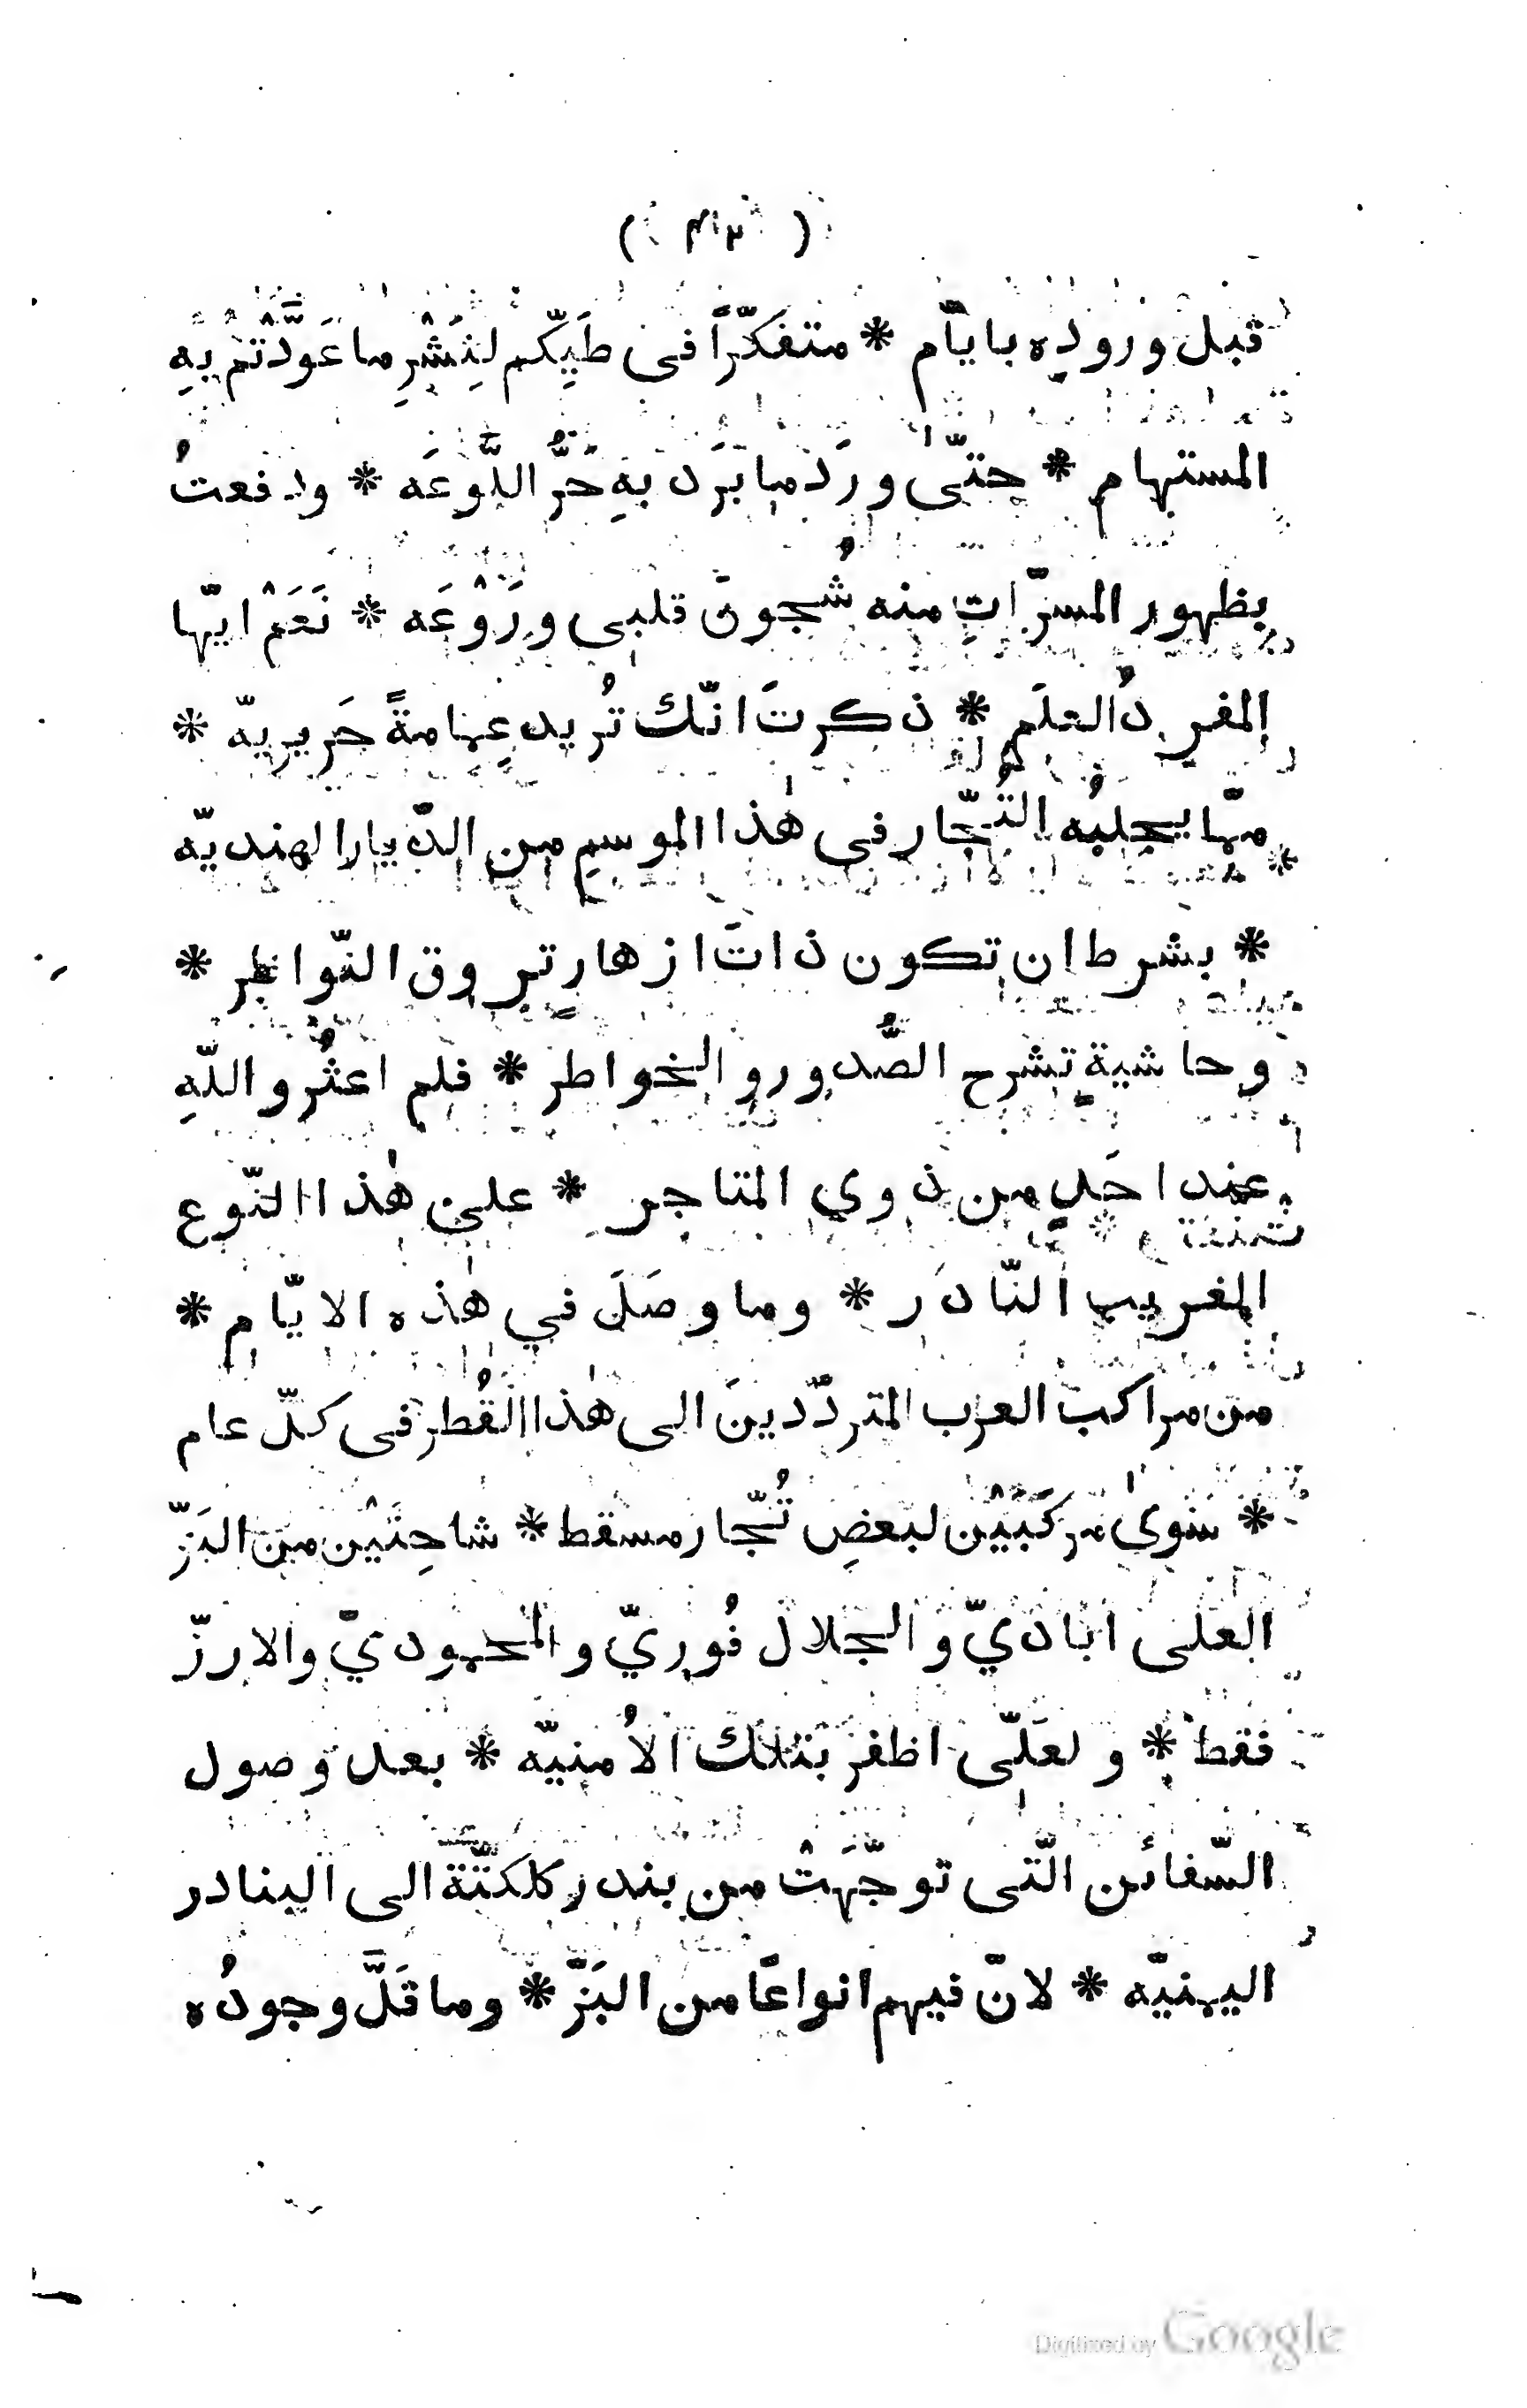 ( ٣١٢ )
قبل وروده بايّام * متفكّرًا فى طَيِّكم لنَشْرِ ما عَوَّدْتُمْ بِهِ
المستهام * حتّىٰ ورَدَ ما بَرَدَ بهِ حَرُّ اللَّوعَه * ودفعتُ
بظهور المسرّاتِ منه شُجونَ قلبى ورَوْعَه * نَعَمْ ايّها
المفردُ العلَم * ذكرتَ انّك تُريد عِمامةً حَريريّه *
ممّا يجلبُه التُّجّار فى هٰذا الموسمِ من الدّيار الهنديّه
* بشرط ان تكون ذاتَ ازهارٍ تروق النّواظر *
وحاشيةٍ تشرح الصُّدور والخواطر * فلم اعثُر واللّٰهِ
عند احَدٍ من ذوي المتاجر * على هٰذا النّوع
الغريب النّادر * وما وصَلَ في هٰذه الايّام *
من مراكب العرب المتردّدينَ الى هٰذا القُطر فى كلّ عام
* سَوىٰ مركَبَيْن لبعضِ تُجّار مسقط * شاحِنَيْن من البَزّ
العلى اباديّ والجلال فُوريّ والمحموديّ والارزّ
فقط * ولعَلّى اظفر بتلك الاُمنيّه * بعد وصول
السّفائن الّتى توجّهَتْ من بندر كلكتّة الى البنادر
اليمنيّه * لانّ فيهم انواعًا من البَزّ * وما قَلَّ وجودُه
Digitized by Google